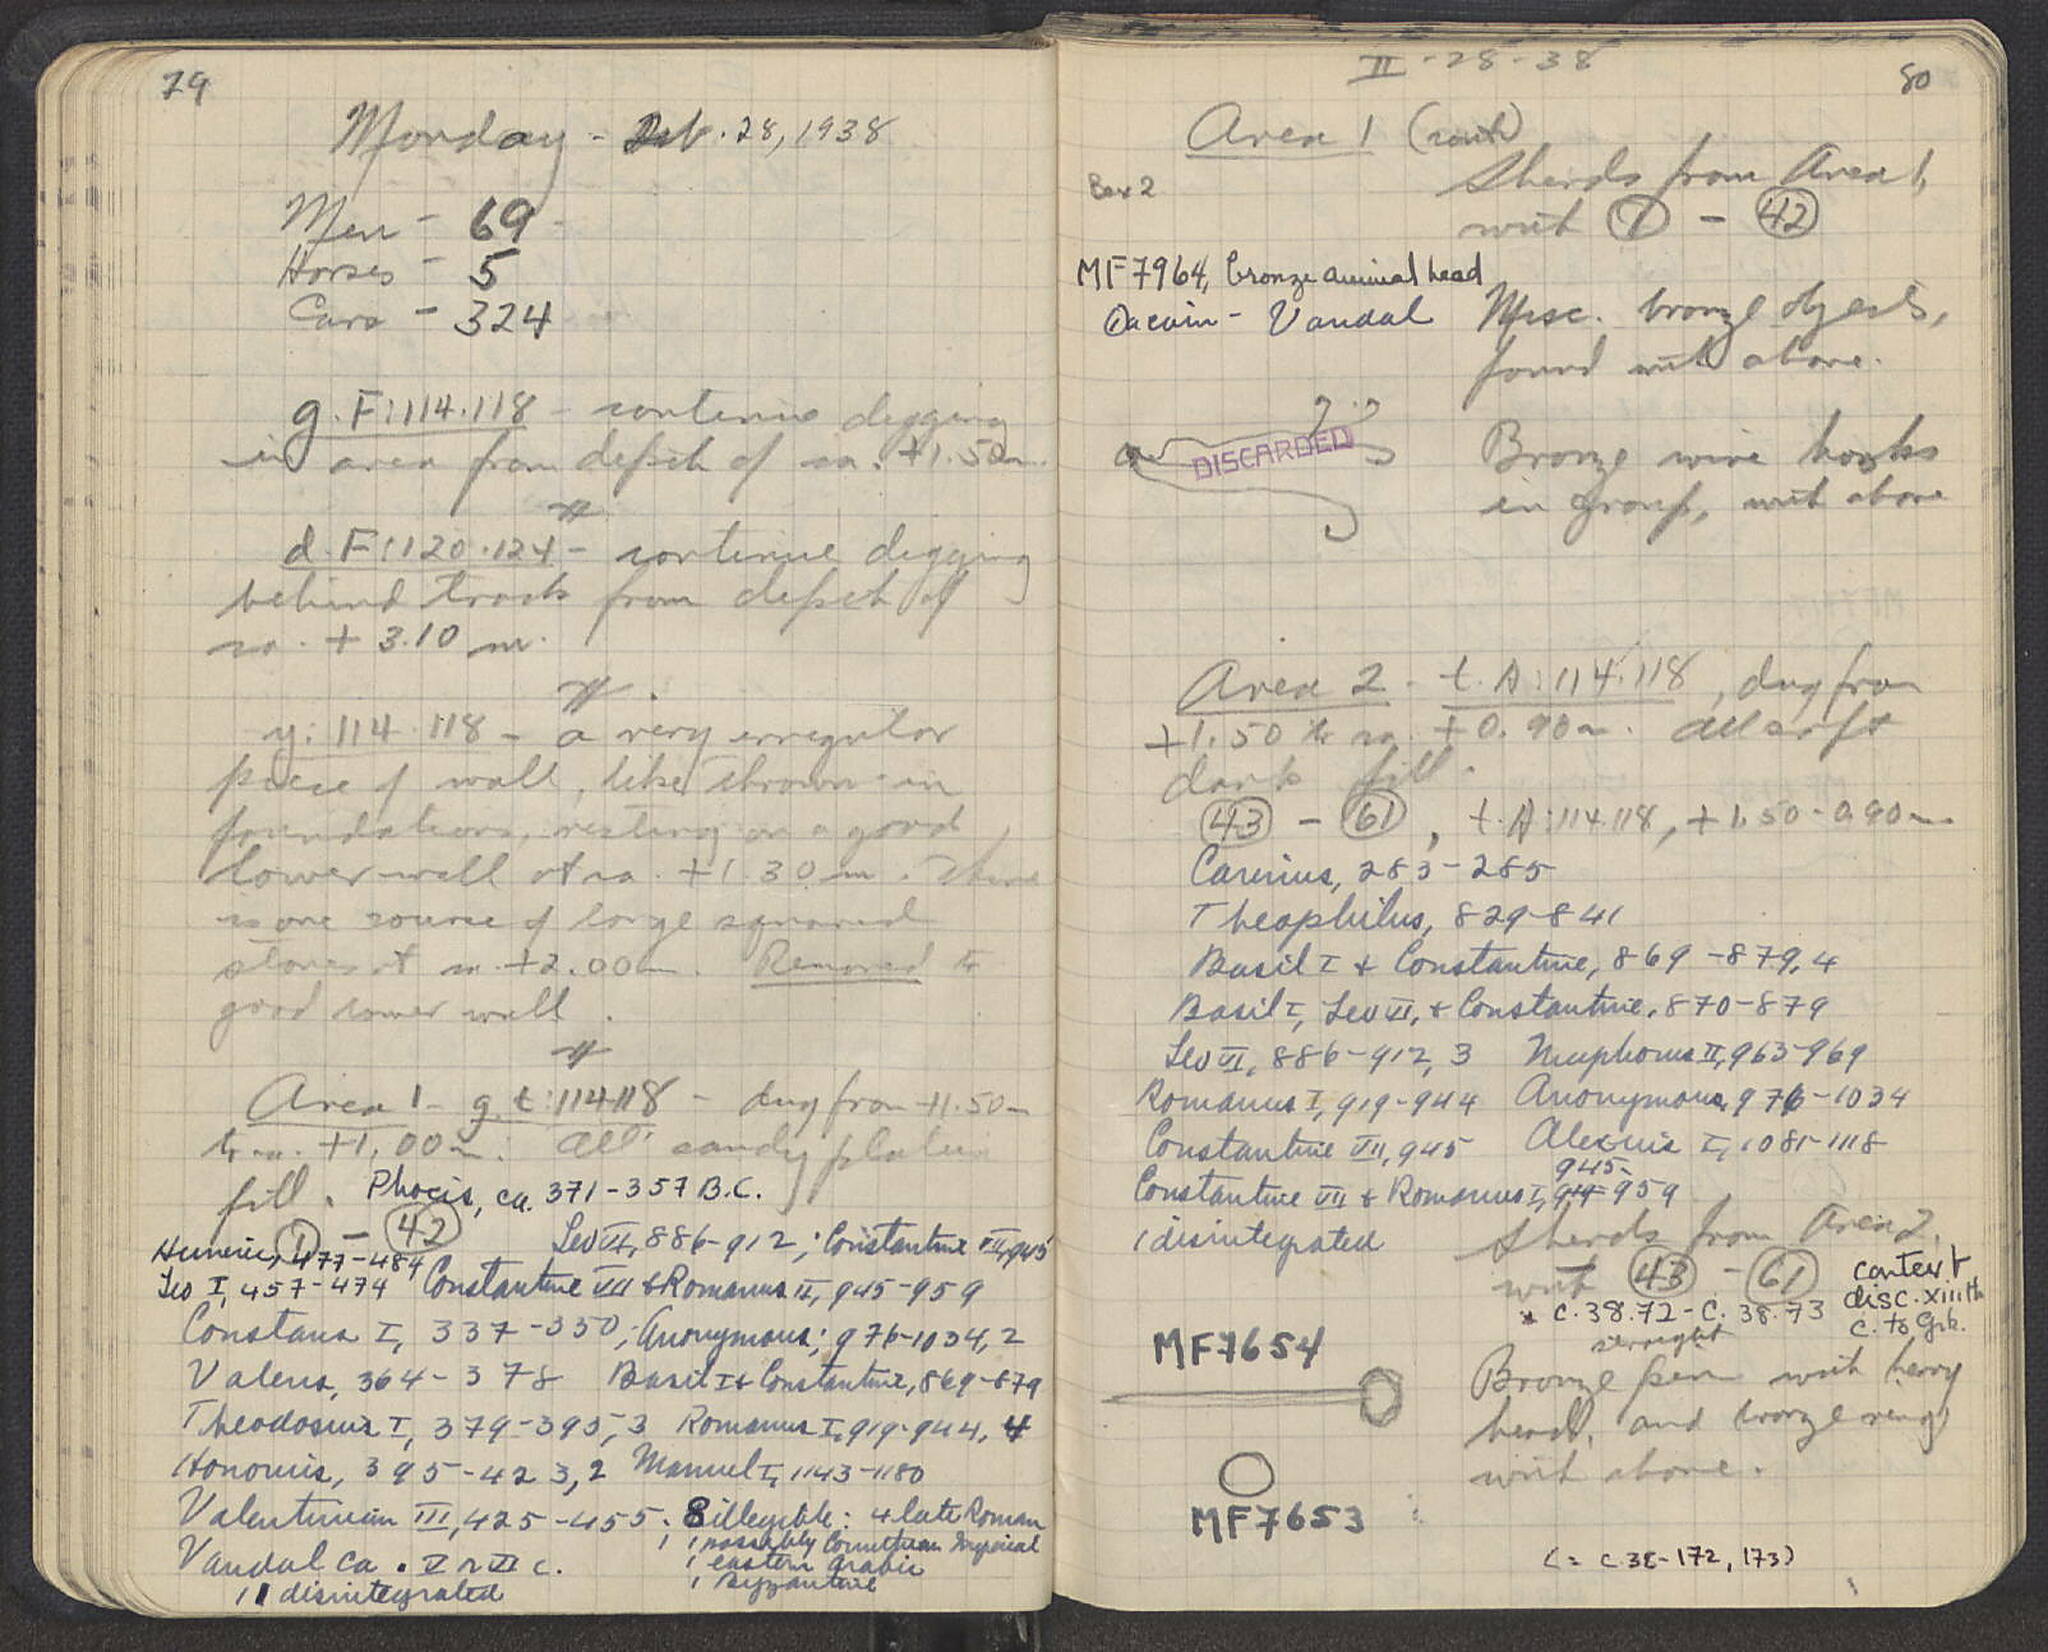 79
Monday - Feb. 28, 1938
Men - 69
Horses - 5
Cars - 324
g. F:114.118 - continue digging
in area from depth of ca. +1.50m.
d. F:120.124 - continue digging
behind track from depth of
ca. + 3.10 m.
y: 114.118 - a very irregular
piece of wall, like thrown-in
foundations, resting on a good
lower wall at ca. +1.30 m. There
is one course of large squared
stones at ca. +2.00m. Removed to
good lower wall.
Area 1 - g. t:114.118 - dug from +1.50m
to ca. +1.00m. All sandy
fill. Phocis, ca. 371-357 B.C.
1 - 42 Leo VI, 886-912; Constantine VII, 945
Huneric, 477-484
Leo I, 457-474 Constantine VII & Romanus II, 945-959
Constans I, 337-350; Anonymous; 976-1034, 2
Valens, 364-378 Basil I & Constantine, 869-879
Theodosius I, 379-395, 3 Romanus I, 919-944, 4
Honorius, 395-423, 2 Manuel I, 1143-1180
Valentinian III, 425-455. 8 illegible: 4 late Roman
1 possibly Corinthian Imperial
Vandal ca. V or VI c. 1 eastern Arabic
1 Byzantine
11 disintegrated
II-28-38
80
Area 1 (south)
Box 2
Sherds from Area 1,
with 1 - 42
MF7964, bronze animal head
coin - Vandal
Misc. bronze objects,
found with above.
DISCARDED
Bronze wire hooks
in group, with above
Area 2 - t. A:114.118, dug from
+1.50 to ca. +0.90m. All soft
dark fill.
43 - 61, t. A:114.118, +1.50-0.90m
Carinus, 283-285
Theophilus, 829-841
Basil I & Constantine, 869-879, 4
Basil I, Leo VI, & Constantine, 870-879
Leo VI, 886-912, 3 Nicephorus II, 963-969
Romanus I, 919-944 Anonymous, 976-1034
Constantine VII, 945 Alexius I, 1081-1118
945-
Constantine VII & Romanus I, 919-959
1 disintegrated
Sherds from Area 2,
with 43 - 61
context
disc. XIIIth
c. to Grk.
* C.38.72 - C.38.73
MF7654
straight
Bronze pin with heavy
head, and bronze ring
with above.
MF7653
(= C 38-172, 173)